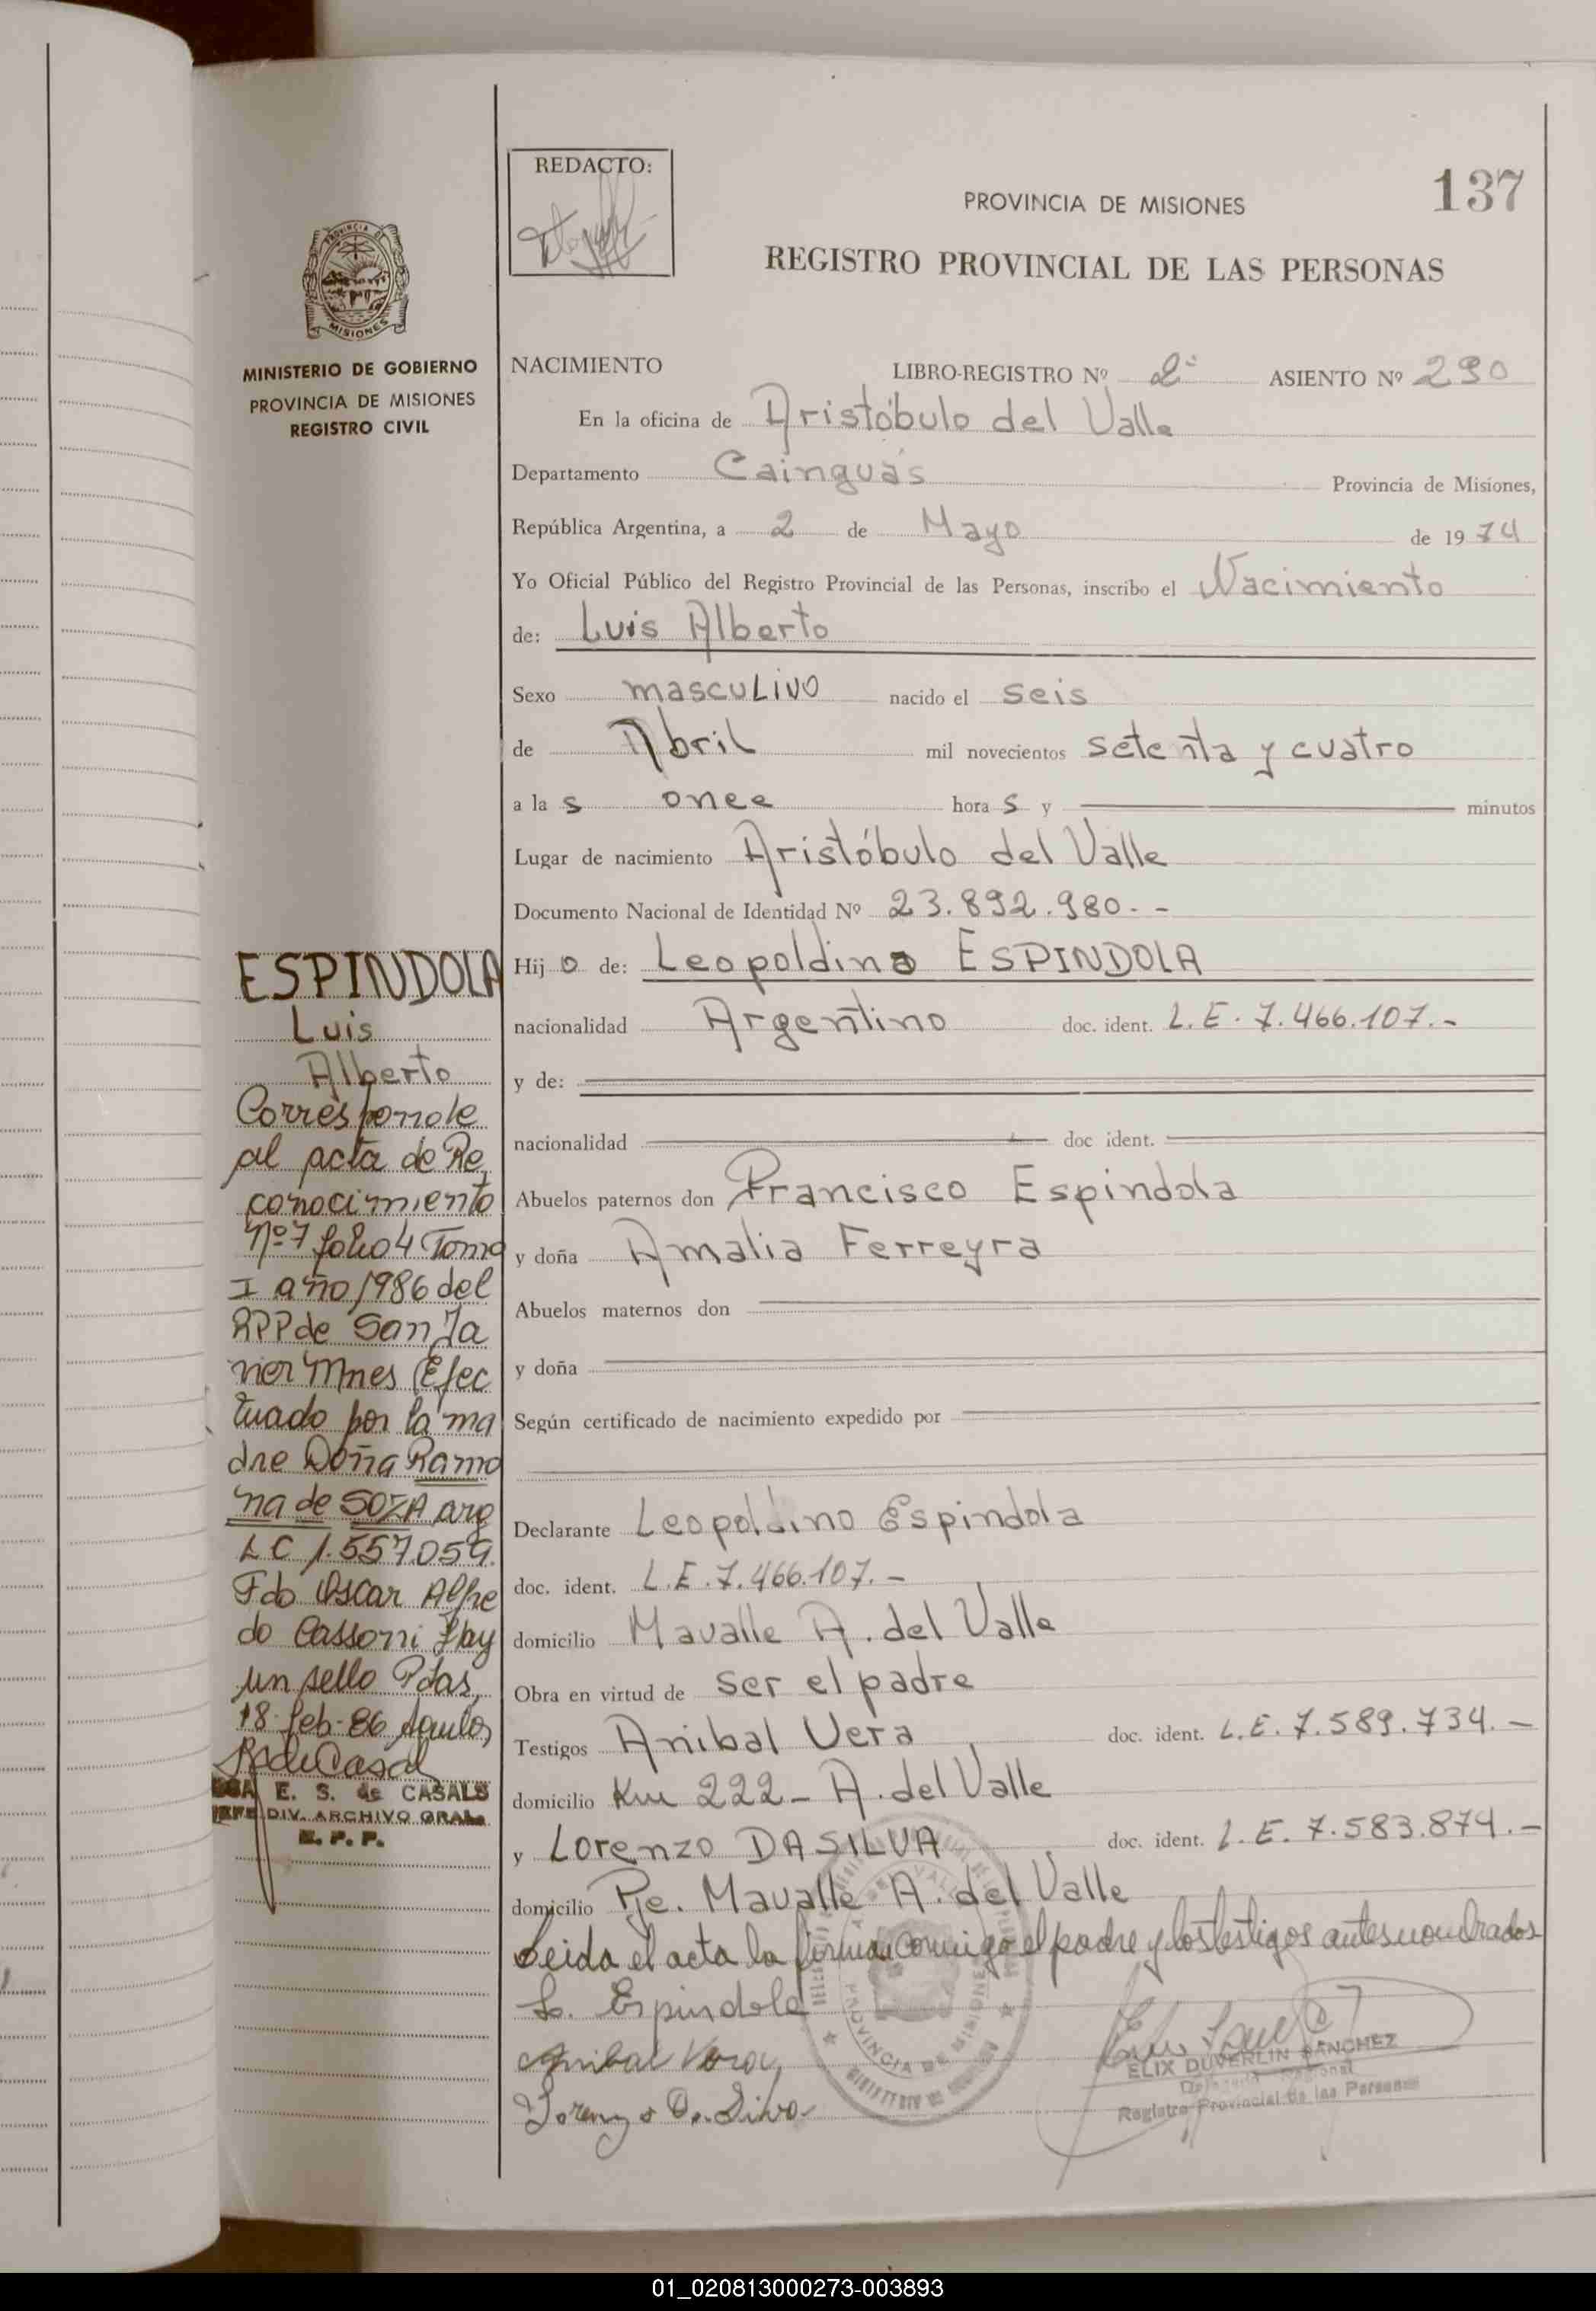 REDACTO:
137
PROVINCIA DE MISIONES
REGISTRO PROVINCIAL DE LAS PERSONAS
PROVINCIA DE
MISIONES
MINISTERIO DE GOBIERNO
PROVINCIA DE MISIONES
REGISTRO CIVIL
NACIMIENTO LIBRO-REGISTRO Nº 2º ASIENTO Nº 290
En la oficina de Aristóbulo del Valle
Departamento Cainguás Provincia de Misiones,
República Argentina, a 2 de Mayo de 1974
Yo Oficial Público del Registro Provincial de las Personas, inscribo el Nacimiento
de: Luis Alberto
Sexo mascuLiNO nacido el seis
de Abril mil novecientos setenta y cuatro
a las once horas y minutos
Lugar de nacimiento Aristóbulo del Valle
Documento Nacional de Identidad Nº 23.892.980.-
Hijo de: Leopoldino ESPINDOLA
nacionalidad Argentino doc. ident. L.E. 7.466.107.-
y de:
nacionalidad doc ident.
Abuelos paternos don Francisco Espindola
y doña Amalia Ferreyra
Abuelos maternos don
y doña
Según certificado de nacimiento expedido por
Declarante Leopoldino Espindola
doc. ident. L.E. 7.466.107.-
domicilio Mavalle A. del Valle
Obra en virtud de ser el padre
Testigos Anibal Vera doc. ident. L.E. 7.589.734.-
domicilio Km 222- A. del Valle
y Lorenzo DASILVA doc. ident. L.E. 7.583.874.-
domicilio Pje. Mavalle A. del Valle
Leida el acta la firman conmigo el padre y los testigos antes nombrados
L. Espindola
Anibal Vera
Lorenzo Da Silva
PROVINCIA DE MISIONES
ELIX DUVERLIN SANCHEZ
Registro Provincial de las Personas
ESPINDOLA
Luis
Alberto
Corresponde
al acta de Re
conocimiento
Nº7 folio 4 Tomo
I año 1986 del
RPP de San Ja
vier Mnes Efec
tuado por la ma
dre Doña Ramo
na de SOZA arg
LC 1.557.059.
Fdo Oscar Alfre
do Cassoni Hay
un sello Pdas,
18-feb-86
E. S. de CASALS
JEFE DIV. ARCHIVO GRAL.
R. P. P.
01_020813000273-003893